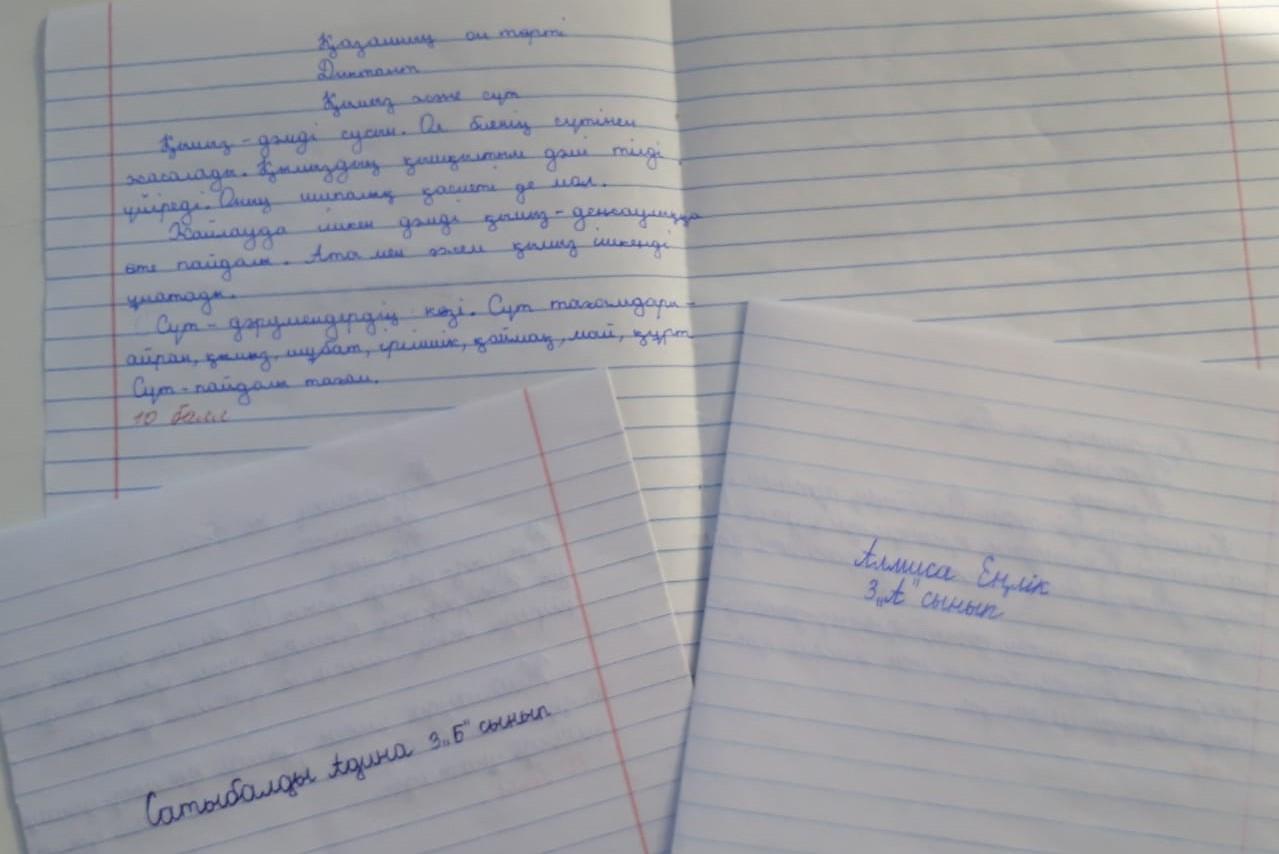 Қазанның он төрті
Диктант
Қымыз және сүт
Қымыз - дәмді сусын. Ол биенің сүтінен
жасалады. Қымыздың қышқылтым дәмі тілді
үйіреді. Оның шипалық қасиеті де мол.
Жайлауда ішкен дәмді қымыз - денсаулыққа
өте пайдалы. Ата мен әжем қымыз ішкенді
ұнатады.
Сүт - дәрумендердің көзі. Сүт тағамдары -
айран, қымыз, шұбат, ірімшік, қаймақ, май, құрт
Сүт - пайдалы тағам.
10 балл
Сатыбалды Адина 3 „Б" сынып
Алмиса Еңлік
3 „А" сынып